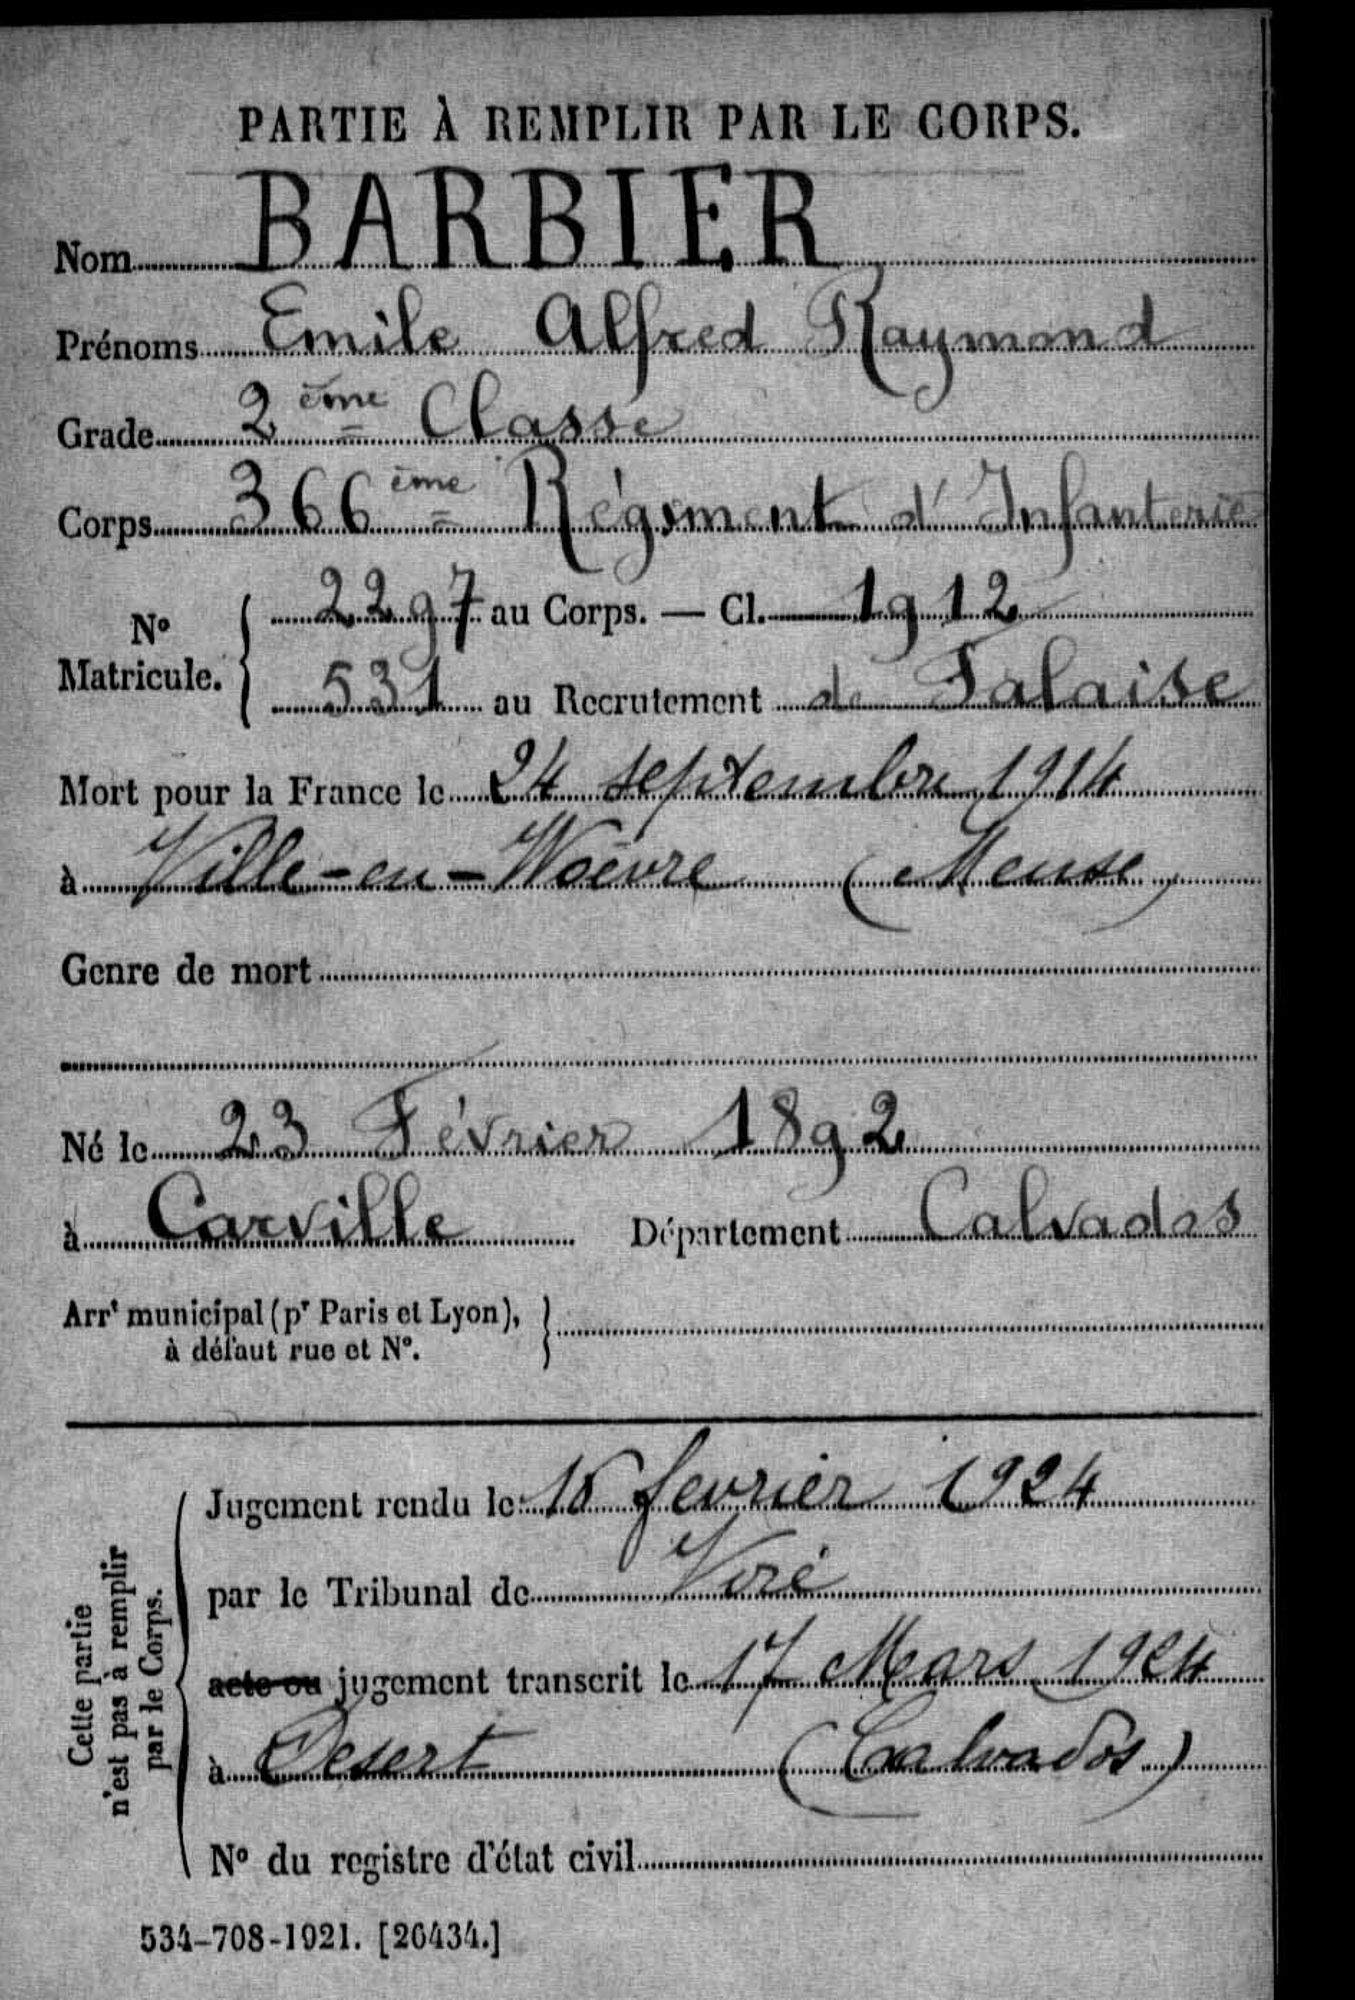 PARTIE À REMPLIR PAR LE CORPS.
Nom BARBIER
Prénoms Emile Alfred Raymond
Grade 2ème Classe
Corps 366ème Régiment d'Infanterie
N° Matricule. { 2297 au Corps. — Cl. 1912
531 au Recrutement de Falaise
Mort pour la France le 24 septembre 1914
à Ville-en-Woëvre (Meuse)
Genre de mort
Né le 23 Février 1892
à Carville Département Calvados
Arrt municipal (pr Paris et Lyon), }
à défaut rue et N°.
Cette partie
n'est pas à remplir
par le Corps.
Jugement rendu le février 1924
par le Tribunal de Vire
acte ou jugement transcrit le 17 Mars 1924
à Desert (Calvados)
N° du registre d'état civil
534-708-1921. [26434.]